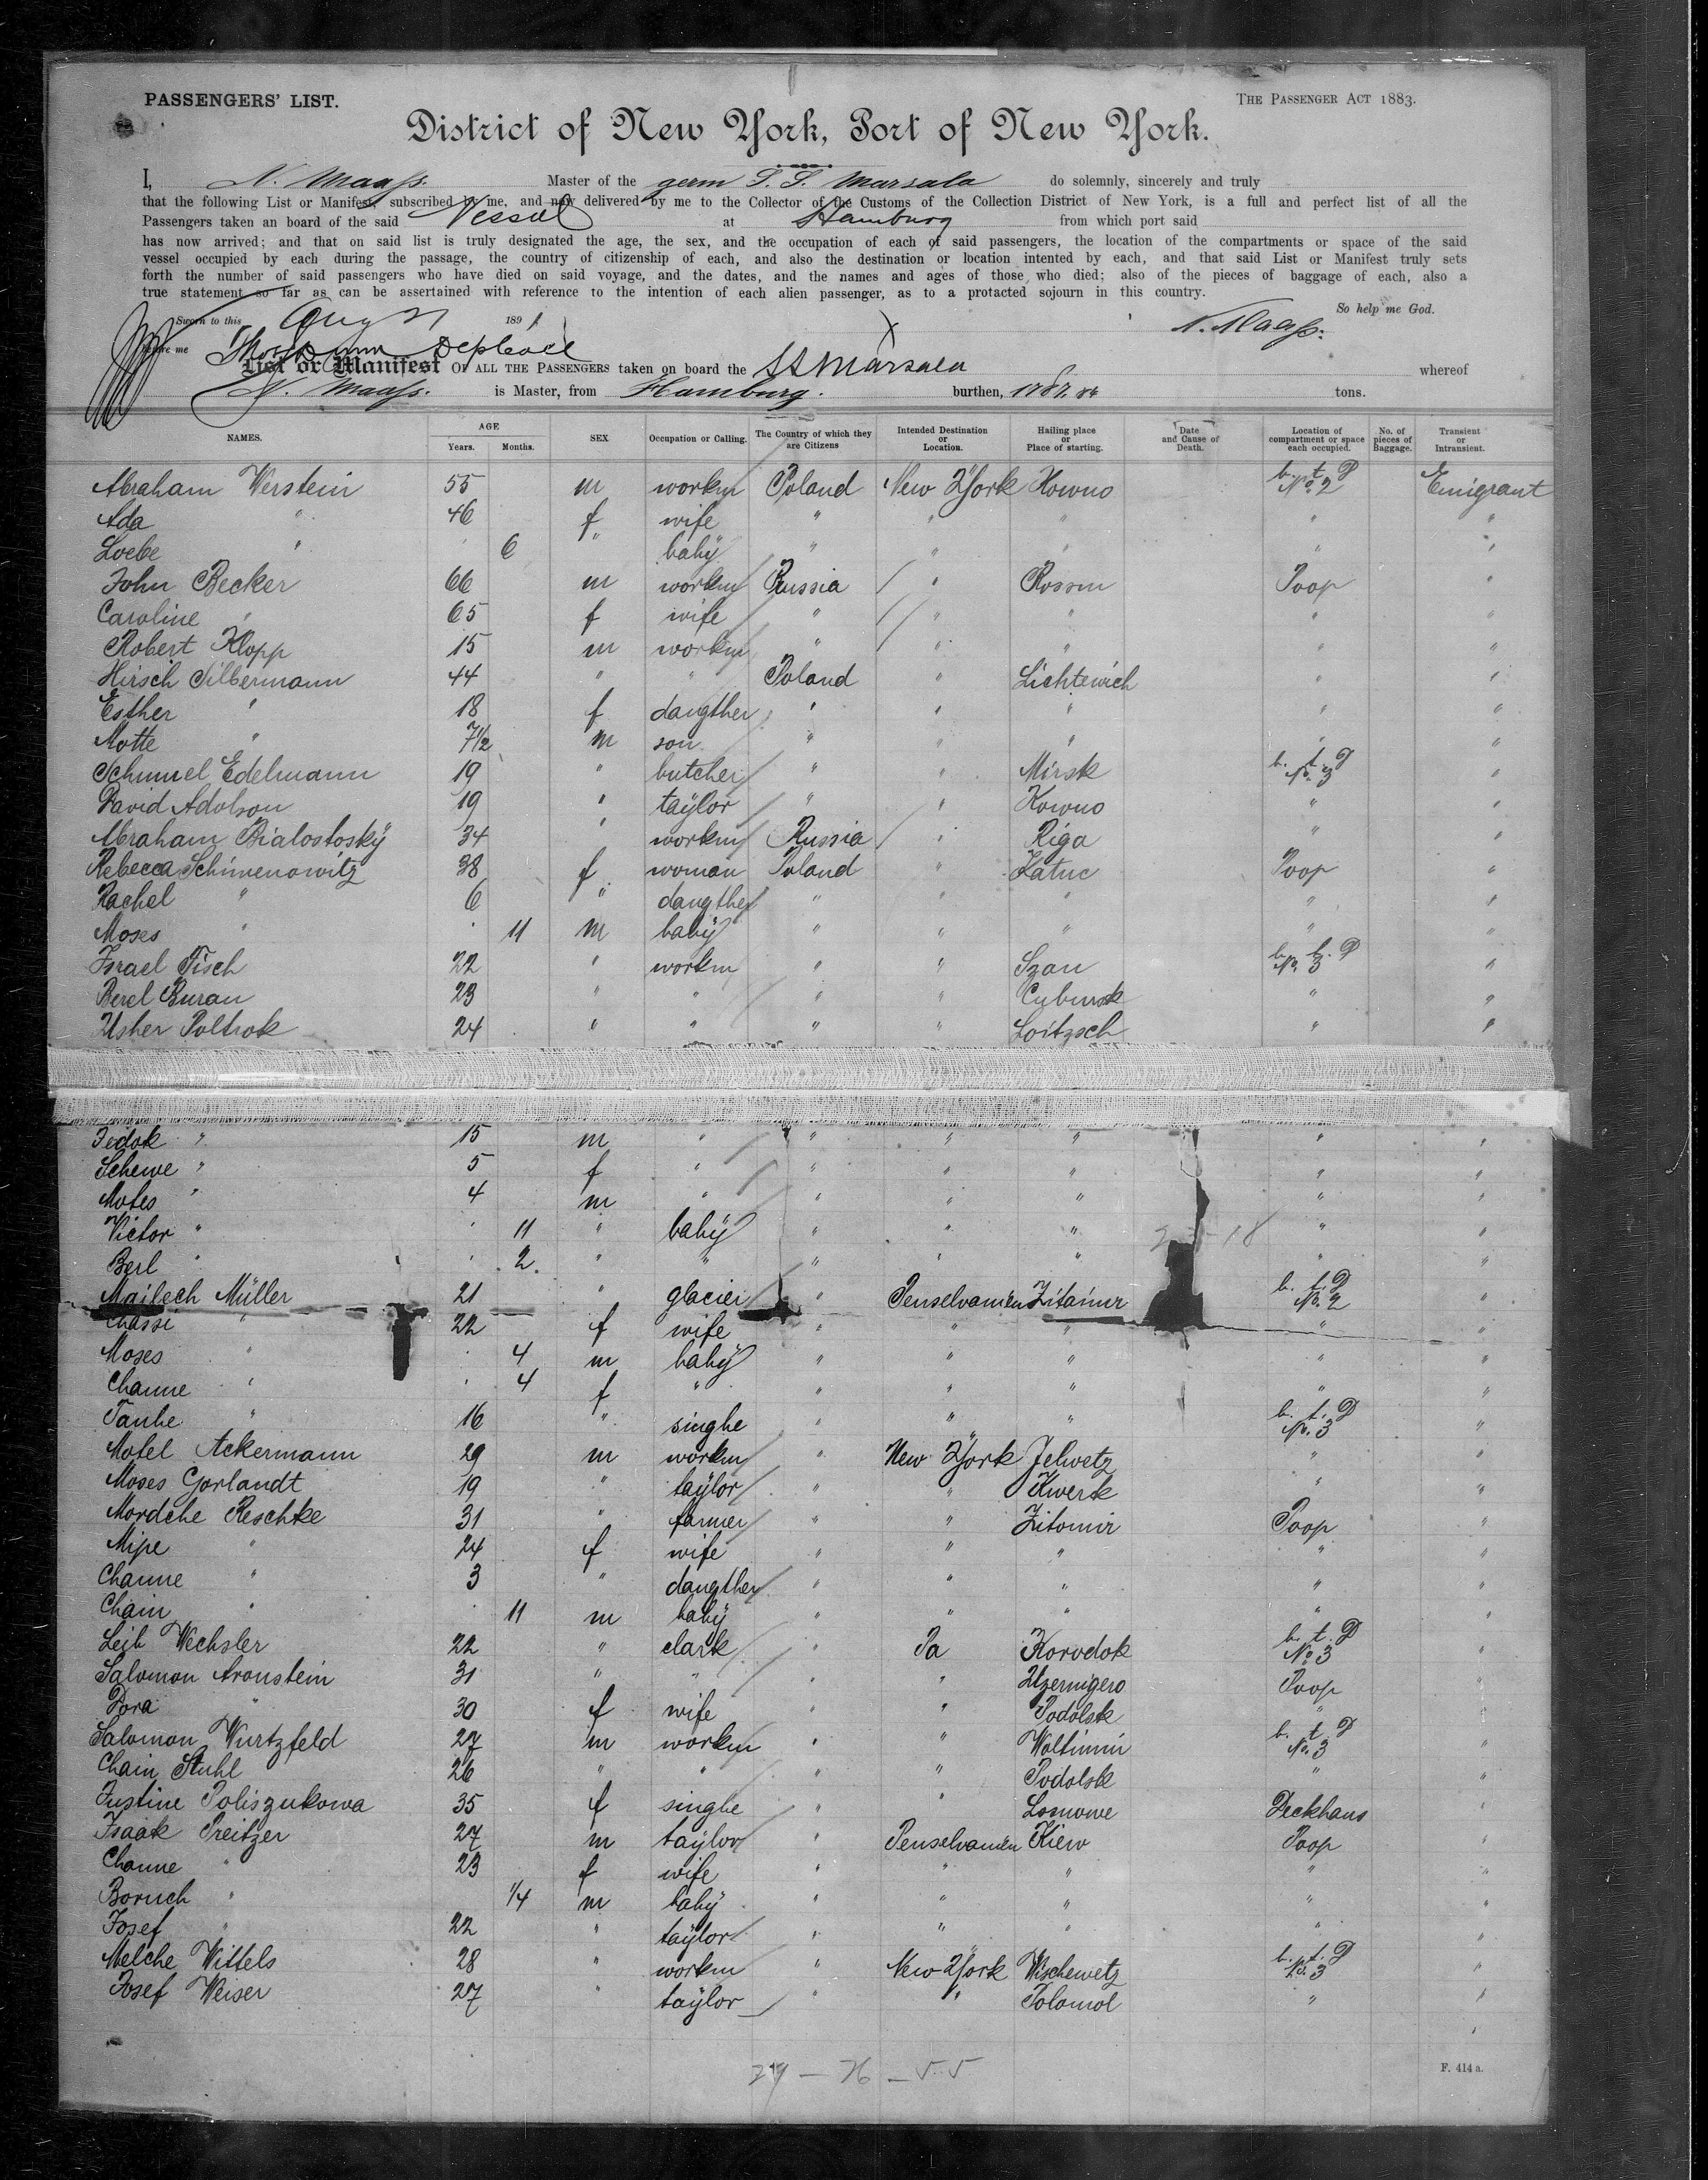 PASSENGERS' LIST.
THE PASSENGER ACT 1883.
District of New York, Port of New York.
I, N. Maass. Master of the germ S. S. Marsala do solemnly, sincerely and truly
that the following List or Manifest, subscribed by me, and now delivered by me to the Collector of the Customs of the Collection District of New York, is a full and perfect list of all the
Passengers taken an board of the said Vessel at Hamburg from which port said
has now arrived; and that on said list is truly designated the age, the sex, and the occupation of each of said passengers, the location of the compartments or space of the said
vessel occupied by each during the passage, the country of citizenship of each, and also the destination or location intented by each, and that said List or Manifest truly sets
forth the number of said passengers who have died on said voyage, and the dates, and the names and ages of those who died; also of the pieces of baggage of each, also a
true statement so far as can be assertained with reference to the intention of each alien passenger, as to a protacted sojourn in this country.
So help me God.
Sworn to this Aug 21 1891
N. Maass.
before me
List or Manifest OF ALL THE PASSENGERS taken on board the SS Marsala whereof
N. Maass. is Master, from Hamburg. burthen, tons.
NAMES. AGE Years. Months. SEX Occupation or Calling. The Country of which they are Citizens Intended Destination or Location. Hailing place or Place of starting. Date and Cause of Death. Location of compartment or space each occupied. No. of pieces of Baggage. Transient or Intransient.
Abraham Werstein 55 m workm Poland New York Kowno b. t. D No. 2 Emigrant
Ada " 46 f wife " " " " "
Loebe " 6 " baby " " " " "
John Becker 66 m workm Russia " Rossm Poop "
Caroline " 65 f wife " " " " "
Robert Klopp 15 m workm " " " " "
Hirsch Silbermann 44 " " Poland " Lichtewich " "
Esther " 18 f daugther " " " " "
Motte " 7 1/2 m son " " " " "
Schmuel Edelmann 19 " butcher " " Mirsk b. t. D No. 3 "
David Adolson 19 " taylor " " Kowno " "
Abraham Bialostosky 34 " workm Russia " Riga " "
Rebecca Schimenowitz 38 f woman Poland " Katuc Poop "
Rachel " 6 " daugther " " " " "
Moses " 11 m baby " " " " "
Israel Fisch 22 " workm " " Szan b. t. D No. 3 "
Berel Buran 23 " " " " Cybursk " "
Usher Poltrok 24 " " " " Loitzsch " "
Fedok " 15 m " " " " " "
Schewe " 5 f " " " " " "
Motes " 4 m " " " " " "
Victor " 11 " baby " " " " "
Berl " 2 " " " " " " "
Mailech Müller 21 " glacier " Penselvanien Zitaimir b. t. D No. 2 "
Chassi " 22 f wife " " " " "
Moses " 4 m baby " " " " "
Channe " 4 f " " " " " "
Taube " 16 " singhe " " " b. t. D No. 3 "
Motel Ackermann 29 m workm " New York Jelwetz " "
Moses Gorlandt 19 " taylor " " Kwerk " "
Mordche Reschke 31 " farmer " " Zitomir Poop "
Mipe " 24 f wife " " " " "
Channe " 3 " daugther " " " " "
Chain " 11 m baby " " " " "
Leib Wechsler 22 " clark " Pa Korodok b. t. D No. 3 "
Salomon Aronstein 31 " " " " Uzernigero Poop "
Dora " 30 f wife " " Podolsk " "
Salomon Wurtzfeld 27 m workm " " Woltinnin b. t. D No. 3 "
Chain Stuhl 26 " " " " Podolsk " "
Justine Poliszukowa 35 f singhe " " Lomowe Deckhaus "
Isaak Preitzer 27 m taylor " Penselvanien Kiew Poop "
Channe " 23 f wife " " " " "
Boruch " 1/4 m baby " " " " "
Josef " 22 " taylor " " " " "
Melche Wittels 28 " workm " New York Wischewetz b. t. D No. 3 "
Josef Weiser 27 " taylor " " Polomol " "
29 - 26 - 55
F. 414 a.